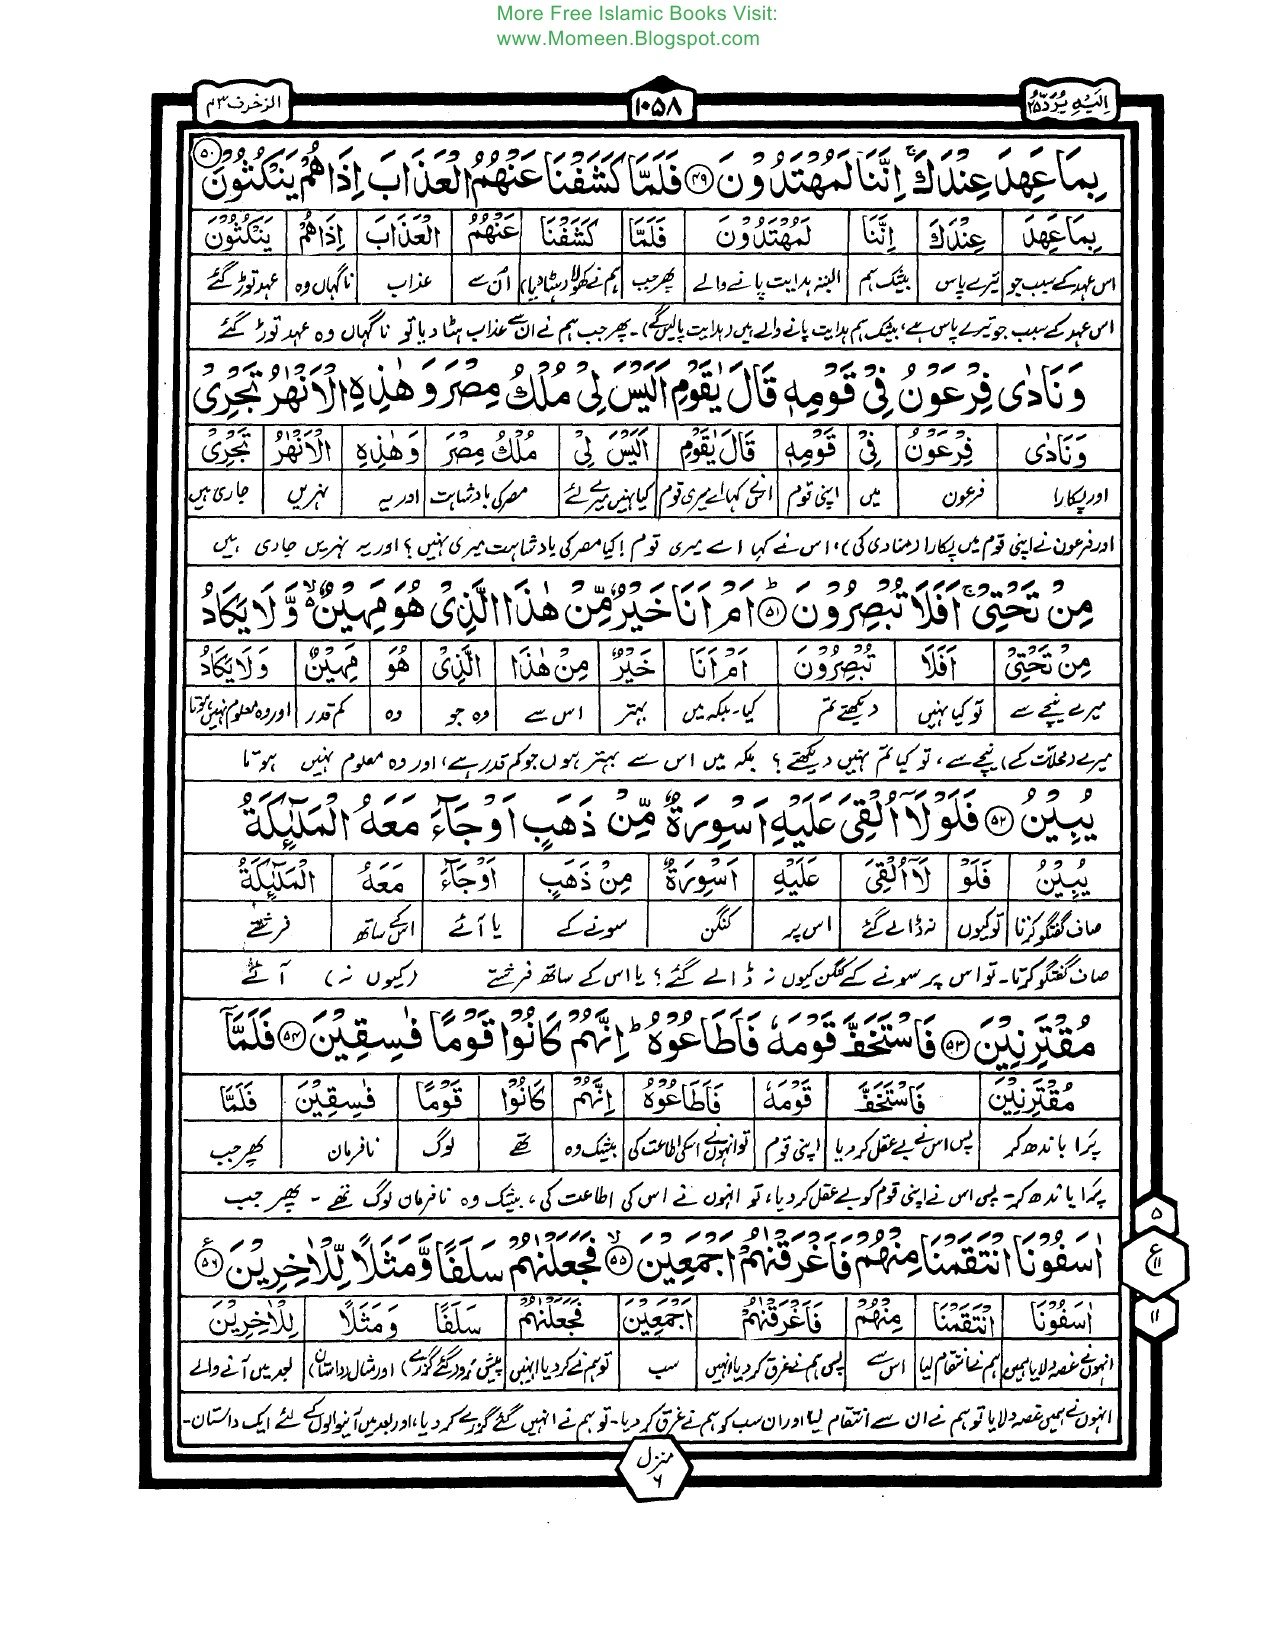 More Free Islamic Books Visit:
www.Momeen.Blogspot.com
اِلَيْهِ يُرَدُّ ٢٥
١٠٥٨
الزخرف ٤٣
بِمَا عَهِدَ عِنْدَكَ ۚ اِنَّنَا لَمُهْتَدُوْنَ ﴿٤٩﴾ فَلَمَّا كَشَفْنَا عَنْهُمُ الْعَذَابَ اِذَا هُمْ يَنْكُثُوْنَ ﴿٥٠﴾
بِمَا عَهِدَ عِنْدَكَ اِنَّنَا لَمُهْتَدُوْنَ فَلَمَّا كَشَفْنَا عَنْهُمُ الْعَذَابَ اِذَا هُمْ يَنْكُثُوْنَ
اس عہد کے سبب جو تیرے پاس بیشک ہم البتہ ہدایت پانے والے پھر جب ہم نے کھولا (ہٹا دیا) اُن سے عذاب ناگہاں وہ عہد توڑ گئے
اس عہد کے سبب جو تیرے پاس ہے، بیشک ہم ہدایت پانے والے ہیں (ہدایت پالیں گے)۔ پھر جب ہم نے ان سے عذاب ہٹا دیا تو ناگہاں وہ عہد توڑ گئے
وَنَادٰى فِرْعَوْنُ فِيْ قَوْمِهٖ قَالَ يٰقَوْمِ اَلَيْسَ لِيْ مُلْكُ مِصْرَ وَهٰذِهِ الْاَنْهٰرُ تَجْرِيْ
وَنَادٰى فِرْعَوْنُ فِيْ قَوْمِهٖ قَالَ يٰقَوْمِ اَلَيْسَ لِيْ مُلْكُ مِصْرَ وَهٰذِهِ الْاَنْهٰرُ تَجْرِيْ
اور پکارا فرعون میں اپنی قوم اس نے کہا اے میری قوم کیا نہیں میرے لئے مصر کی بادشاہت اور یہ نہریں جاری ہیں
اور فرعون نے اپنی قوم میں پکارا (منادی کی)، اس نے کہا اے میری قوم! کیا مصر کی بادشاہت میری نہیں؟ اور یہ نہریں جاری ہیں
مِنْ تَحْتِيْ ۚ اَفَلَا تُبْصِرُوْنَ ﴿٥١﴾ اَمْ اَنَا خَيْرٌ مِّنْ هٰذَا الَّذِيْ هُوَ مَهِيْنٌ ۙ وَّلَا يَكَادُ
مِنْ تَحْتِيْ اَفَلَا تُبْصِرُوْنَ اَمْ اَنَا خَيْرٌ مِنْ هٰذَا الَّذِيْ هُوَ مَهِيْنٌ وَلَا يَكَادُ
میرے نیچے سے تو کیا نہیں دیکھتے تم کیا۔بلکہ میں بہتر اس سے وہ جو وہ کم قدر اور وہ معلوم نہیں ہوتا
میرے (محلات کے) نیچے سے، تو کیا تم نہیں دیکھتے؟ بلکہ میں اس سے بہتر ہوں جو کم قدر ہے، اور وہ معلوم نہیں ہوتا
يُبِيْنُ ﴿٥٢﴾ فَلَوْلَآ اُلْقِيَ عَلَيْهِ اَسْوِرَةٌ مِّنْ ذَهَبٍ اَوْ جَآءَ مَعَهُ الْمَلٰٓئِكَةُ
يُبِيْنُ فَلَوْ لَآ اُلْقِيَ عَلَيْهِ اَسْوِرَةٌ مِنْ ذَهَبٍ اَوْ جَآءَ مَعَهُ الْمَلٰٓئِكَةُ
صاف گفتگو کرتا تو کیوں نہ ڈالے گئے اس پر کنگن سونے کے یا آئے اس کے ساتھ فرشتے
صاف گفتگو کرتا۔ تو اس پر سونے کے کنگن کیوں نہ ڈالے گئے؟ یا اس کے ساتھ فرشتے (کیوں نہ) آئے
مُقْتَرِنِيْنَ ﴿٥٣﴾ فَاسْتَخَفَّ قَوْمَهٗ فَاَطَاعُوْهُ ۭ اِنَّهُمْ كَانُوْا قَوْمًا فٰسِقِيْنَ ﴿٥٤﴾ فَلَمَّآ
مُقْتَرِنِيْنَ فَاسْتَخَفَّ قَوْمَهٗ فَاَطَاعُوْهُ اِنَّهُمْ كَانُوْا قَوْمًا فٰسِقِيْنَ فَلَمَّا
پرا باندھ کر پس اس نے بے عقل کر دیا اپنی قوم تو انہوں نے اسکی اطاعت کی بیشک وہ تھے لوگ نافرمان پھر جب
پرا باندھ کر۔ پس اس نے اپنی قوم کو بے عقل کر دیا، تو انہوں نے اس کی اطاعت کی، بیشک وہ نافرمان لوگ تھے۔ پھر جب
اٰسَفُوْنَا انْتَقَمْنَا مِنْهُمْ فَاَغْرَقْنٰهُمْ اَجْمَعِيْنَ ﴿٥٥﴾ ۙ فَجَعَلْنٰهُمْ سَلَفًا وَّمَثَلًا لِّلْاٰخِرِيْنَ ﴿٥٦﴾ ع
اٰسَفُوْنَا انْتَقَمْنَا مِنْهُمْ فَاَغْرَقْنٰهُمْ اَجْمَعِيْنَ فَجَعَلْنٰهُمْ سَلَفًا وَمَثَلًا لِلْاٰخِرِيْنَ
انہوں نے غصہ دلایا ہمیں ہم نے انتقام لیا اُن سے پس ہم نے غرق کر دیا انہیں سب تو ہم نے کر دیا انہیں پیش رو (گئے گزرے) اور مثال (داستان) بعد میں آنے والے
انہوں نے ہمیں غصہ دلایا تو ہم نے ان سے انتقام لیا اور ان سب کو ہم نے غرق کر دیا۔ تو ہم نے انہیں گئے گزرے کر دیا، اور بعد میں آنیوالوں کے لئے ایک داستان۔
٥
ع
١١
١١
منزل
٦